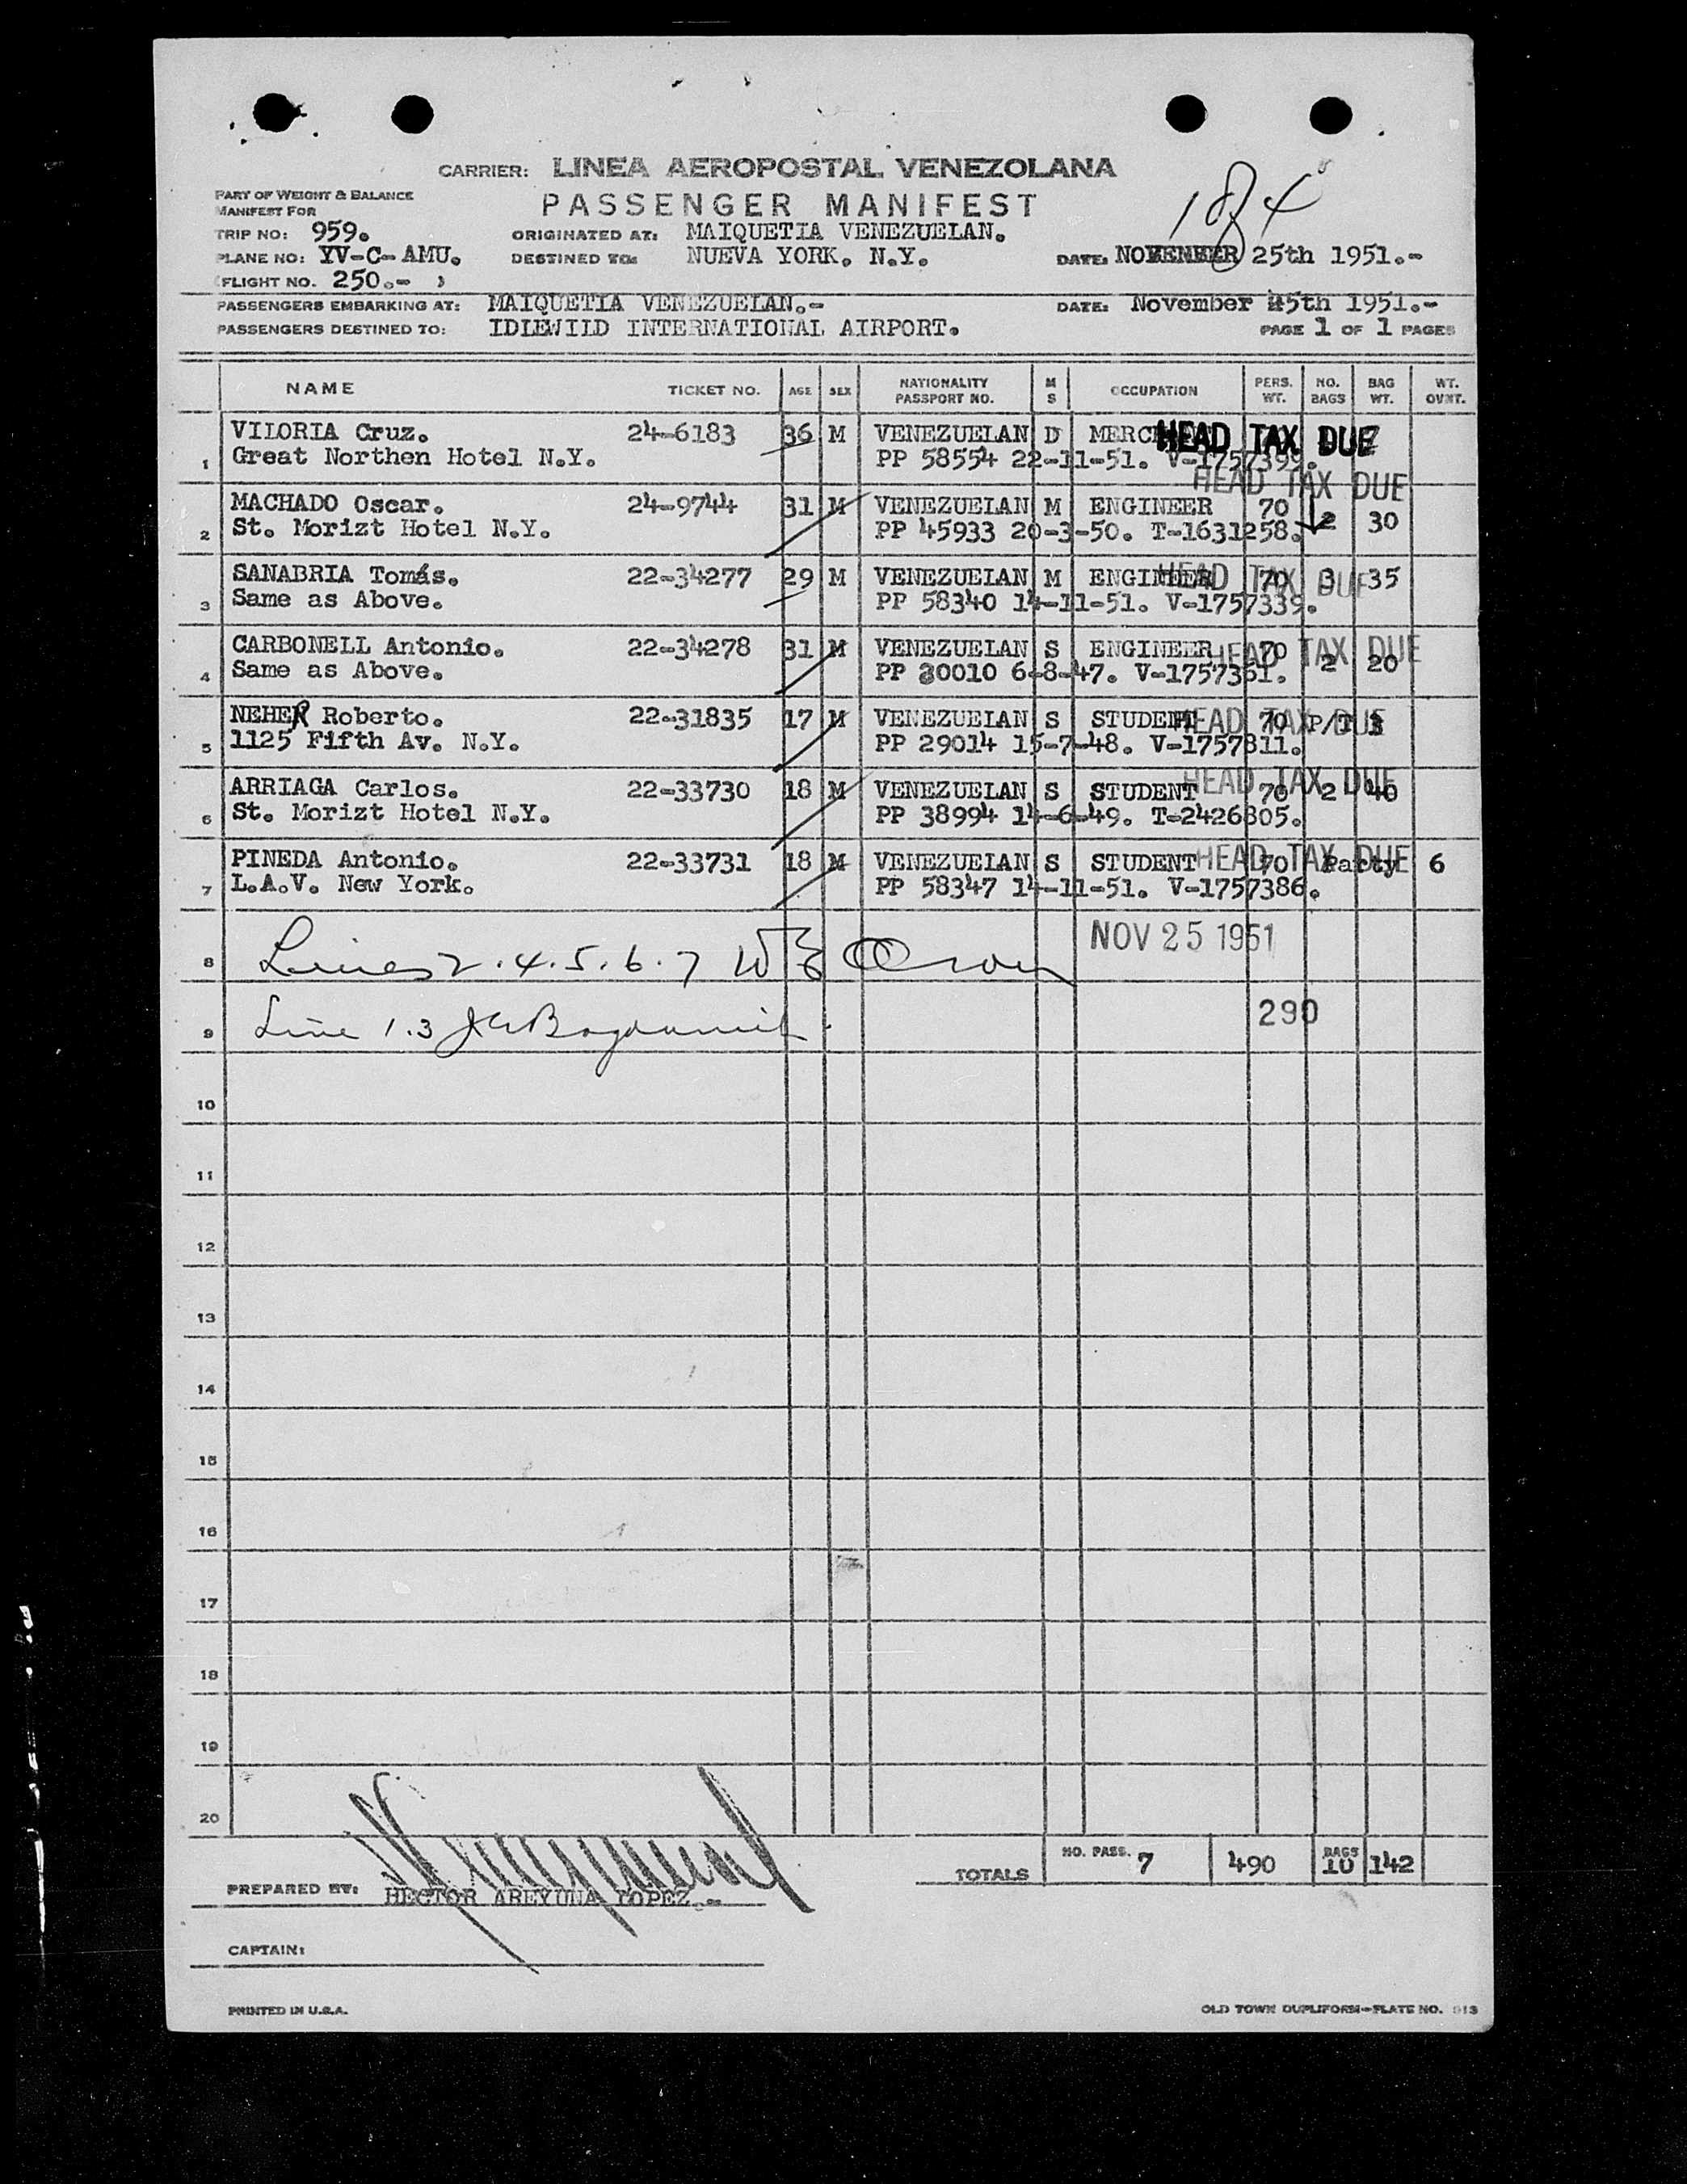 CARRIER: LINEA AEROPOSTAL VENEZOLANA
184
PART OF WEIGHT & BALANCE
MANIFEST FOR
PASSENGER MANIFEST
TRIP NO: 959. ORIGINATED AT: MAIQUETIA VENEZUELAN.
PLANE NO: YV-C-AMU. DESTINED TO: NUEVA YORK. N.Y. DATE: NOVEMBER 25th 1951.-
(FLIGHT NO. 250.- )
PASSENGERS EMBARKING AT: MAIQUETIA VENEZUELAN.- DATE: November 25th 1951.-
PASSENGERS DESTINED TO: IDLEWILD INTERNATIONAL AIRPORT. PAGE 1 OF 1 PAGES
NAME TICKET NO. AGE SEX NATIONALITY PASSPORT NO. M S OCCUPATION PERS. WT. NO. BAGS BAG WT. WT. OVNT.
VILORIA Cruz. 24-6183 36 M VENEZUELAN D HEAD TAX DUE
1 Great Northen Hotel N.Y. PP 58554 22-11-51. V-1757399.
HEAD TAX DUE
MACHADO Oscar. 24-9744 31 M VENEZUELAN M ENGINEER 70 2 30
2 St. Morizt Hotel N.Y. PP 45933 20-3-50. T-1631258.
SANABRIA Tomás. 22-34277 29 M VENEZUELAN M ENGINEER 70 3 35 HEAD TAX DUE
3 Same as Above. PP 58340 14-11-51. V-1757339.
CARBONELL Antonio. 22-34278 31 M VENEZUELAN S ENGINEER 70 2 20 HEAD TAX DUE
4 Same as Above. PP 30010 6-8-47. V-1757361.
NEHER Roberto. 22-31835 17 M VENEZUELAN S STUDENT 70 P/T 3 HEAD TAX DUE
5 1125 Fifth Av. N.Y. PP 29014 15-7-48. V-1757311.
ARRIAGA Carlos. 22-33730 18 M VENEZUELAN S STUDENT 70 2 40 HEAD TAX DUE
6 St. Morizt Hotel N.Y. PP 38994 14-6-49. T-2426305.
PINEDA Antonio. 22-33731 18 M VENEZUELAN S STUDENT 70 Party 6 HEAD TAX DUE
7 L.A.V. New York. PP 58347 14-11-51. V-1757386.
NOV 25 1951
8 Lines 2.4.5.6.7
290
9 Line 1.3
10
11
12
13
14
15
16
17
18
19
20
TOTALS NO. PASS. 7 490 BAGS 10 142
PREPARED BY: HECTOR AREYUNA LOPEZ.-
CAPTAIN:
PRINTED IN U.S.A. OLD TOWN DUPLIFORM-PLATE NO.